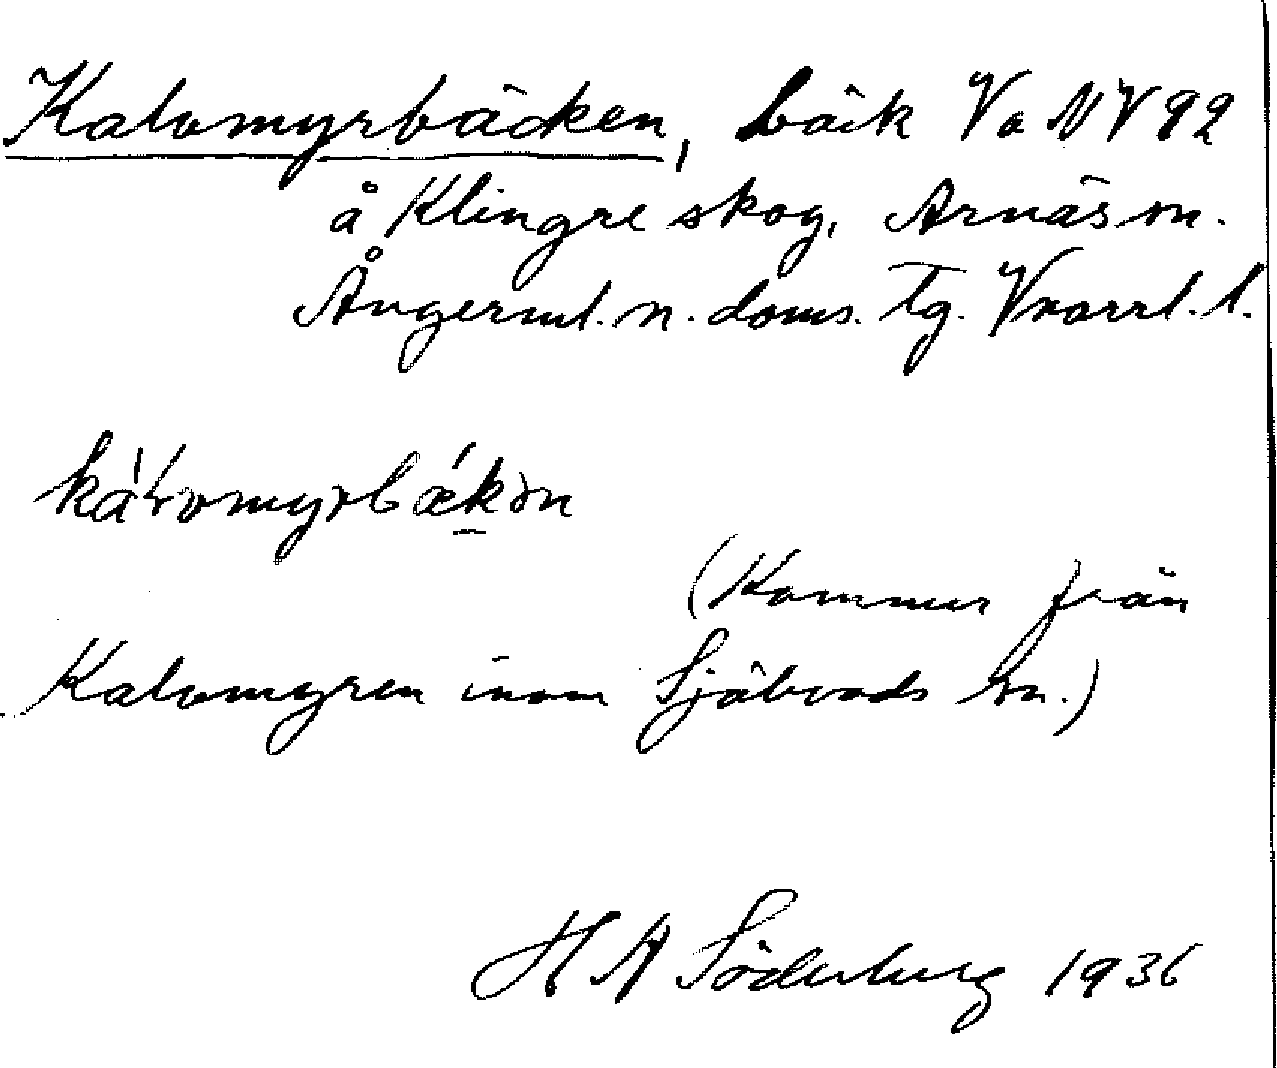 Kalvmyrbäcken, bäck Va NV 92
å Klingre skog, Arnäs sn.
Ångerml. n. doms. Tg. Vnorrl. l.
(Kommer från
Kalvmyren inom Själevads sn.)
H A Söderberg 1936